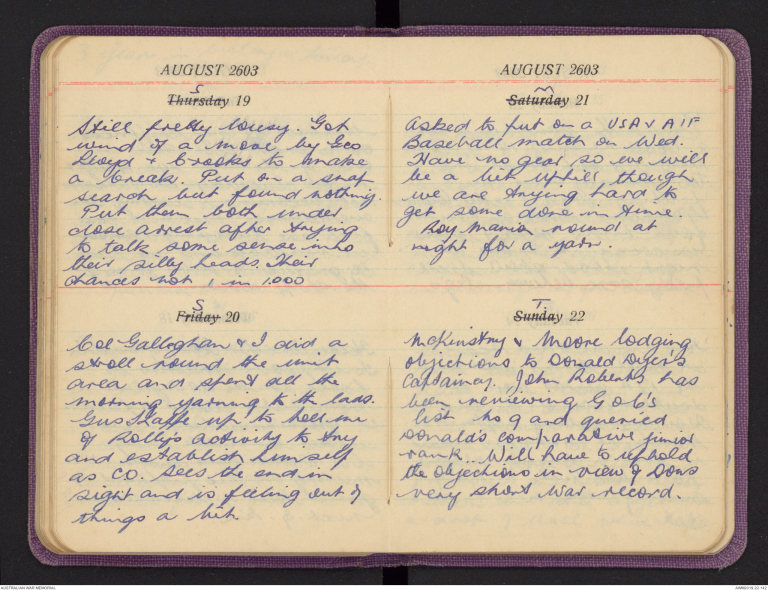 AUGUST 2603
S
Thursday 19
Still pretty lousy. Got
wind of a move by Geo
Lloyd + Crooks to make
a break. Put on a snap
search but found nothing.
Put them both under
close arrest after trying
to talk some sense into
their silly heads. Their
chances not 1 in 1.000
S
Friday 20
Col Galleghan & I did a
stroll round the unit
area and spent all the
morning yarning to the lads.
Gus up to tell me
of Rolly's activity to try
and establish himself
as CO. Sees the end in
sight and is feeling out of
things a bit.
AUGUST 2603
M
Saturday 21
Asked to put on a USA v AIF
Baseball match on Wed.
Have no gear so we will
be a bit uphill though
we are trying hard to
get some done in time.
Roy round at
night for a yarn.
T.
Sunday 22
McKinstry & Moore lodging
objections to Donald Dyer's
Captaincy. John Roberts has
been reviewing G of b's
list no 9 and queried
Donald's comparative junior
rank... Will have to uphold
the objections in view of Dons
very short war record.
AUSTRALIAN WAR MEMORIAL